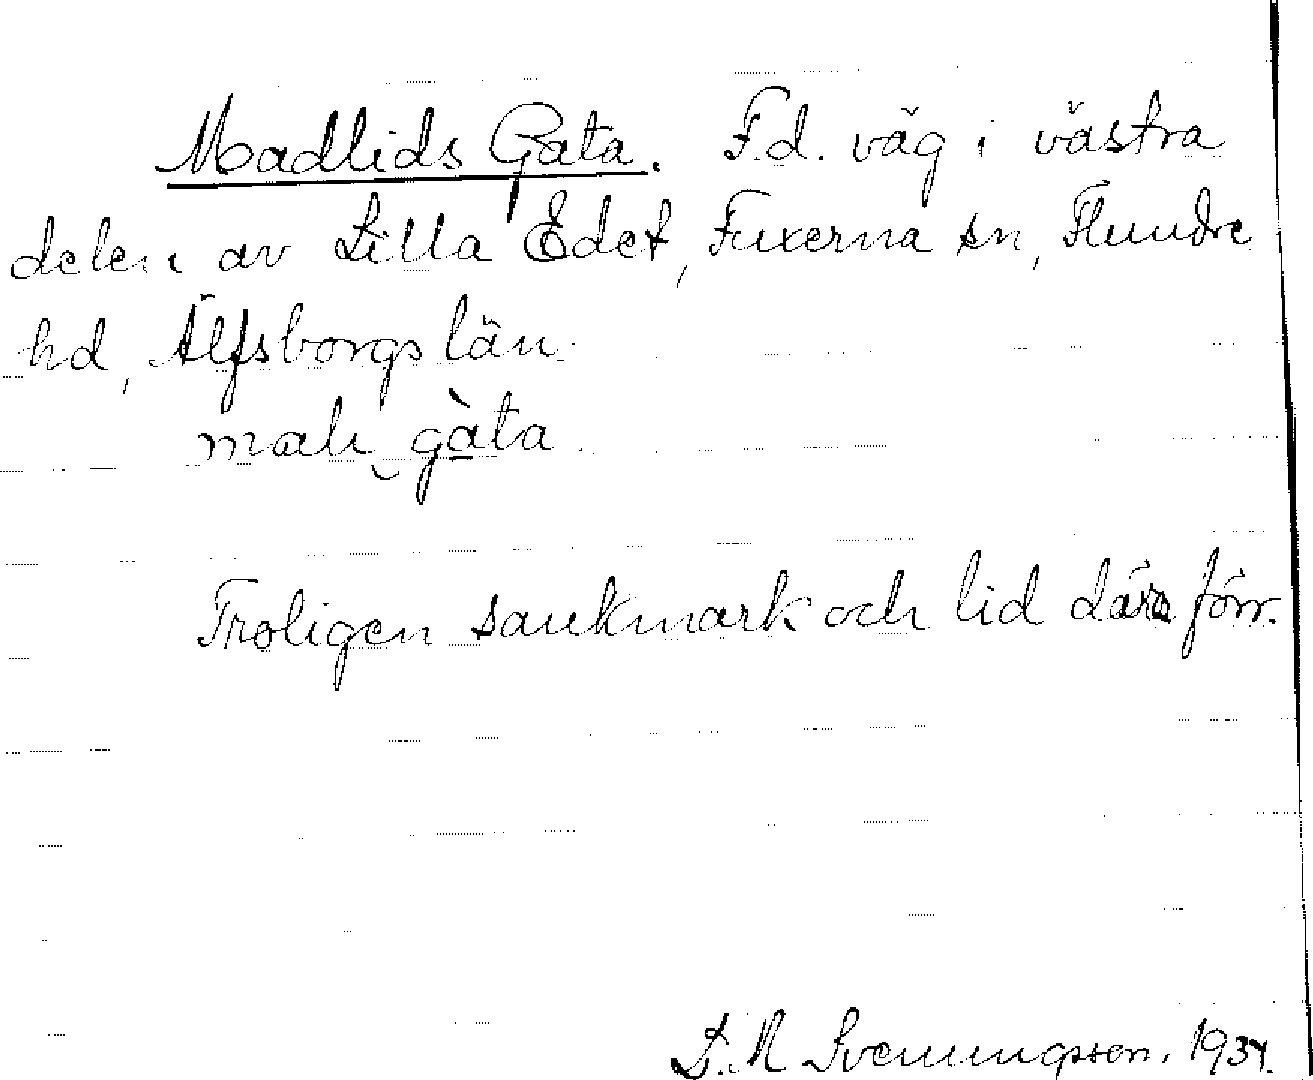 Madlids Gata. F.d. väg i västra
delen av Lilla Edet, Fuxerna sn, Flundre
hd, Älfsborgs län.
gàta
Troligen sankmark och lid där förr.
Svenungsson. 1934.